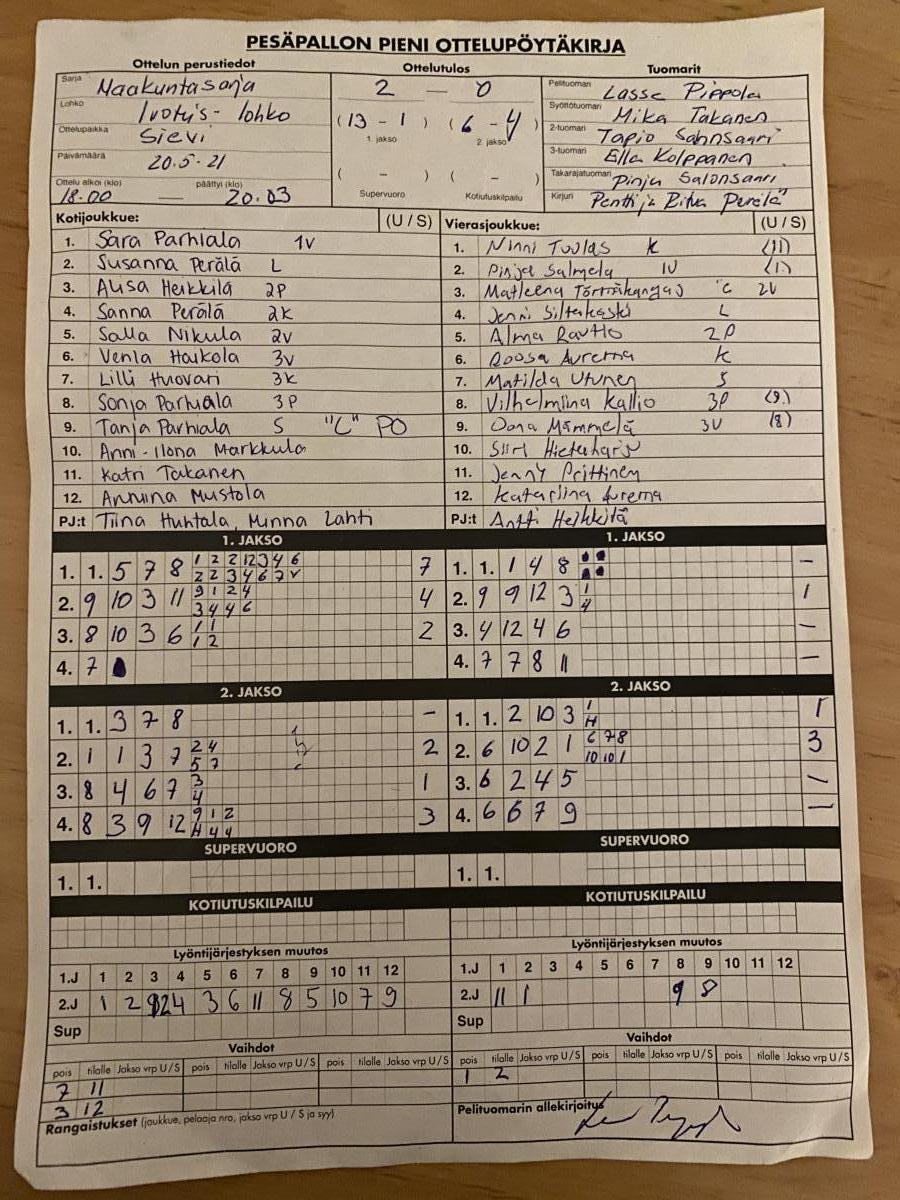 PESÄPALLON PIENI OTTELUPÖYTÄKIRJA
Ottelun perustiedot Ottelutulos Tuomarit
Sarja Maakuntasarja 2 — 0 Pelituomari Lasse Pippola
Lohko lohko Syöttötuomari Mika Takanen
Ottelupaikka Sievi (13 - 1) (6 - 4) 2-tuomari Tapio
1. jakso 2. jakso
Päivämäärä 20.5.21 3-tuomari Ella Kolppanen
( - ) ( - ) Takarajatuomari Pinja Salonsaari
Ottelu alkoi (klo) 18.00 — päättyi (klo) 20.03 Supervuoro Kotiutuskilpailu Kirjuri Pentti ja Ritva Perälä
Kotijoukkue: (U / S) Vierasjoukkue: (U / S)
1. Sara Parhiala 1V 1. Ninni Tuulas K (11)
2. Susanna Perälä L 2. Pinja Salmela 1V (1)
3. Alisa Heikkilä 2P 3. Matleena Törmäkangas "C 2V
4. Sanna Perälä 2K 4. Jenni Siltakoski L
5. Salla Nikula 2V 5. Alma Rautio 2P
6. Venla Haikola 3V 6. Roosa Aurema K
7. Lilli Huovari 3K 7. Matilda Utunen S
8. Sonja Parhiala 3P 8. Vilhelmiina Kallio 3P (9)
9. Tanja Parhiala S "C" PO 9. Oona Mämmelä 3V (8)
10. Anni-Ilona Markkula 10. Siiri Hietaharju
11. Katri Takanen 11. Jenny Prittinen
12. Anniina Mustola 12. Katariina Aurema
PJ:t Tiina Huhtala, Minna Lahti PJ:t Antti Heikkilä
1. JAKSO 1. JAKSO
1. 1. 5 7 8 1 2 2 12 3 4 6 7 1. 1. 1 4 8 –
2 2 3 4 6 7 V
2. 9 10 3 11 9 1 2 4 4 2. 9 9 12 3 1 1
3 4 4 6 4
3. 8 10 3 6 1 1 2 3. 4 12 4 6 –
1 2
4. 7 4. 7 7 8 11 –
2. JAKSO 2. JAKSO
1. 1. 3 7 8 – 1. 1. 2 10 3 1 1
H
2. 1 1 3 7 2 4 2 2. 6 10 2 1 6 7 8 3
5 7 10 10 1
3. 8 4 6 7 3 1 3. 6 2 4 5 –
4
4. 8 3 9 12 9 1 2 3 4. 6 6 7 9 –
H 4 4
SUPERVUORO SUPERVUORO
1. 1. 1. 1.
KOTIUTUSKILPAILU KOTIUTUSKILPAILU
Lyöntijärjestyksen muutos Lyöntijärjestyksen muutos
1.J 1 2 3 4 5 6 7 8 9 10 11 12 1.J 1 2 3 4 5 6 7 8 9 10 11 12
2.J 1 2 12 4 3 6 11 8 5 10 7 9 2.J 11 1 9 8
Sup Sup
Vaihdot Vaihdot
pois tilalle Jakso vrp U / S pois tilalle Jakso vrp U / S pois tilalle Jakso vrp U / S pois tilalle Jakso vrp U / S pois tilalle Jakso vrp U / S pois tilalle Jakso vrp U / S
7 11 1 2
3 12
Rangaistukset (joukkue, pelaaja nro, jakso vrp U / S ja syy) Pelituomarin allekirjoitus